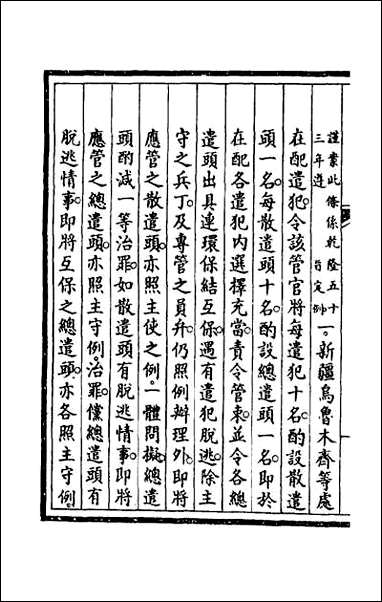 謹案此條係乾隆五十
三年遵
旨定例
一。新疆烏魯木齊等處
在配遣犯。令該管官將每遣犯十名。酌設散遣
頭一名。每散遣頭十名。酌設總遣頭一名。即於
在配各遣犯內選擇充當。責令管束。並令各總
遣頭出具連環保結互保。遇有遣犯脫逃。除主
守之兵丁。及專管之員弁。仍照例辦理外。即將
應管之散遣頭。亦照主使之例。一體問擬。總遣
頭酌減一等治罪。如散遣頭有脫逃情事。即將
應管之總遣頭。亦照主守例。治罪。儻總遣頭有
脫逃情事。即將互保之總遣頭。亦各照主守例。